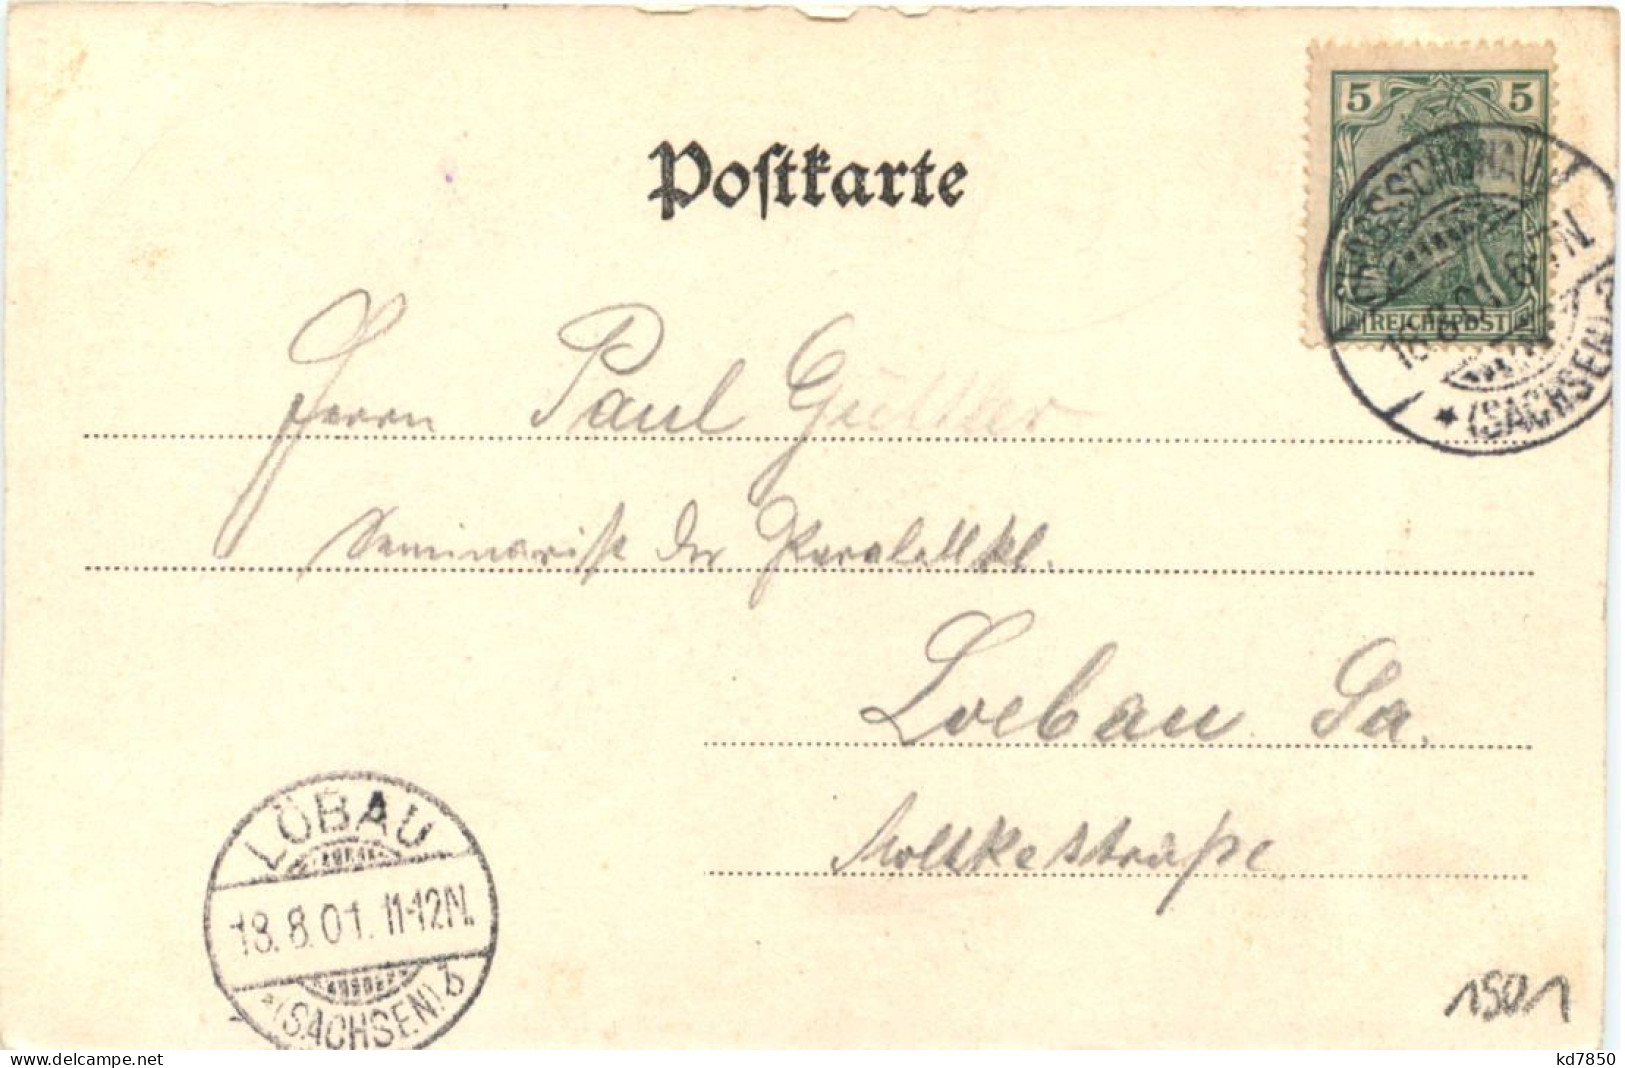 Postkarte
5 5
REICHSPOST
GROSSSCHÖNAU
18.8.01. 6-7N.
*(SACHSEN)a
Herrn Paul Güttler
Seminarist der Parallelkl.
Loebau Sa.
Moltkestraße
LÖBAU
18.8.01. 11-12N.
*(SACHSEN)b
1901
kd7850